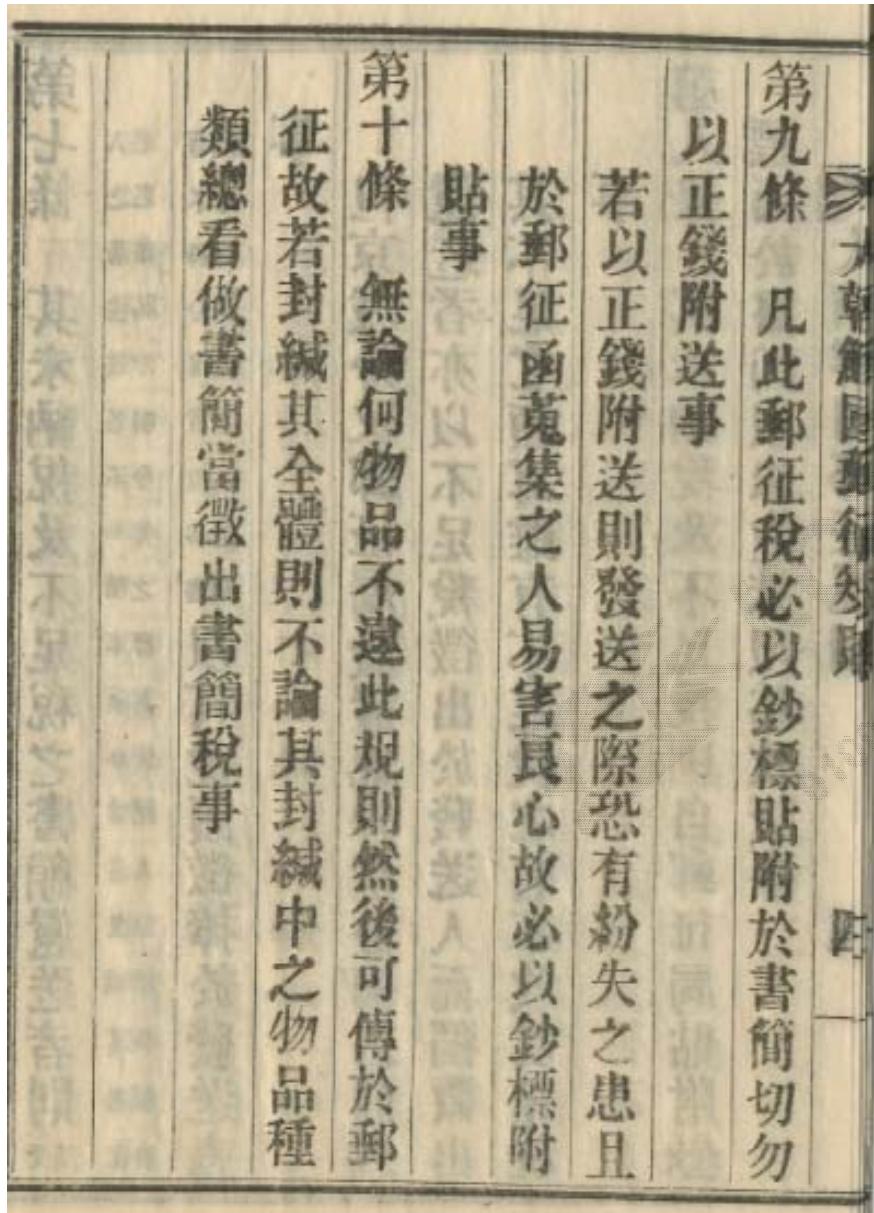 大朝鮮國郵征規則
四
第九條 凡此郵征稅必以鈔標貼附於書簡切勿
以正錢附送事
若以正錢附送則發送之際恐有紛失之患且
於郵征函蒐集之人易害良心故必以鈔標附
貼事
第十條 無論何物品不違此規則然後可傳於郵
征故若封緘其全體則不論其封緘中之物品種
類總看做書簡當徵出書簡稅事